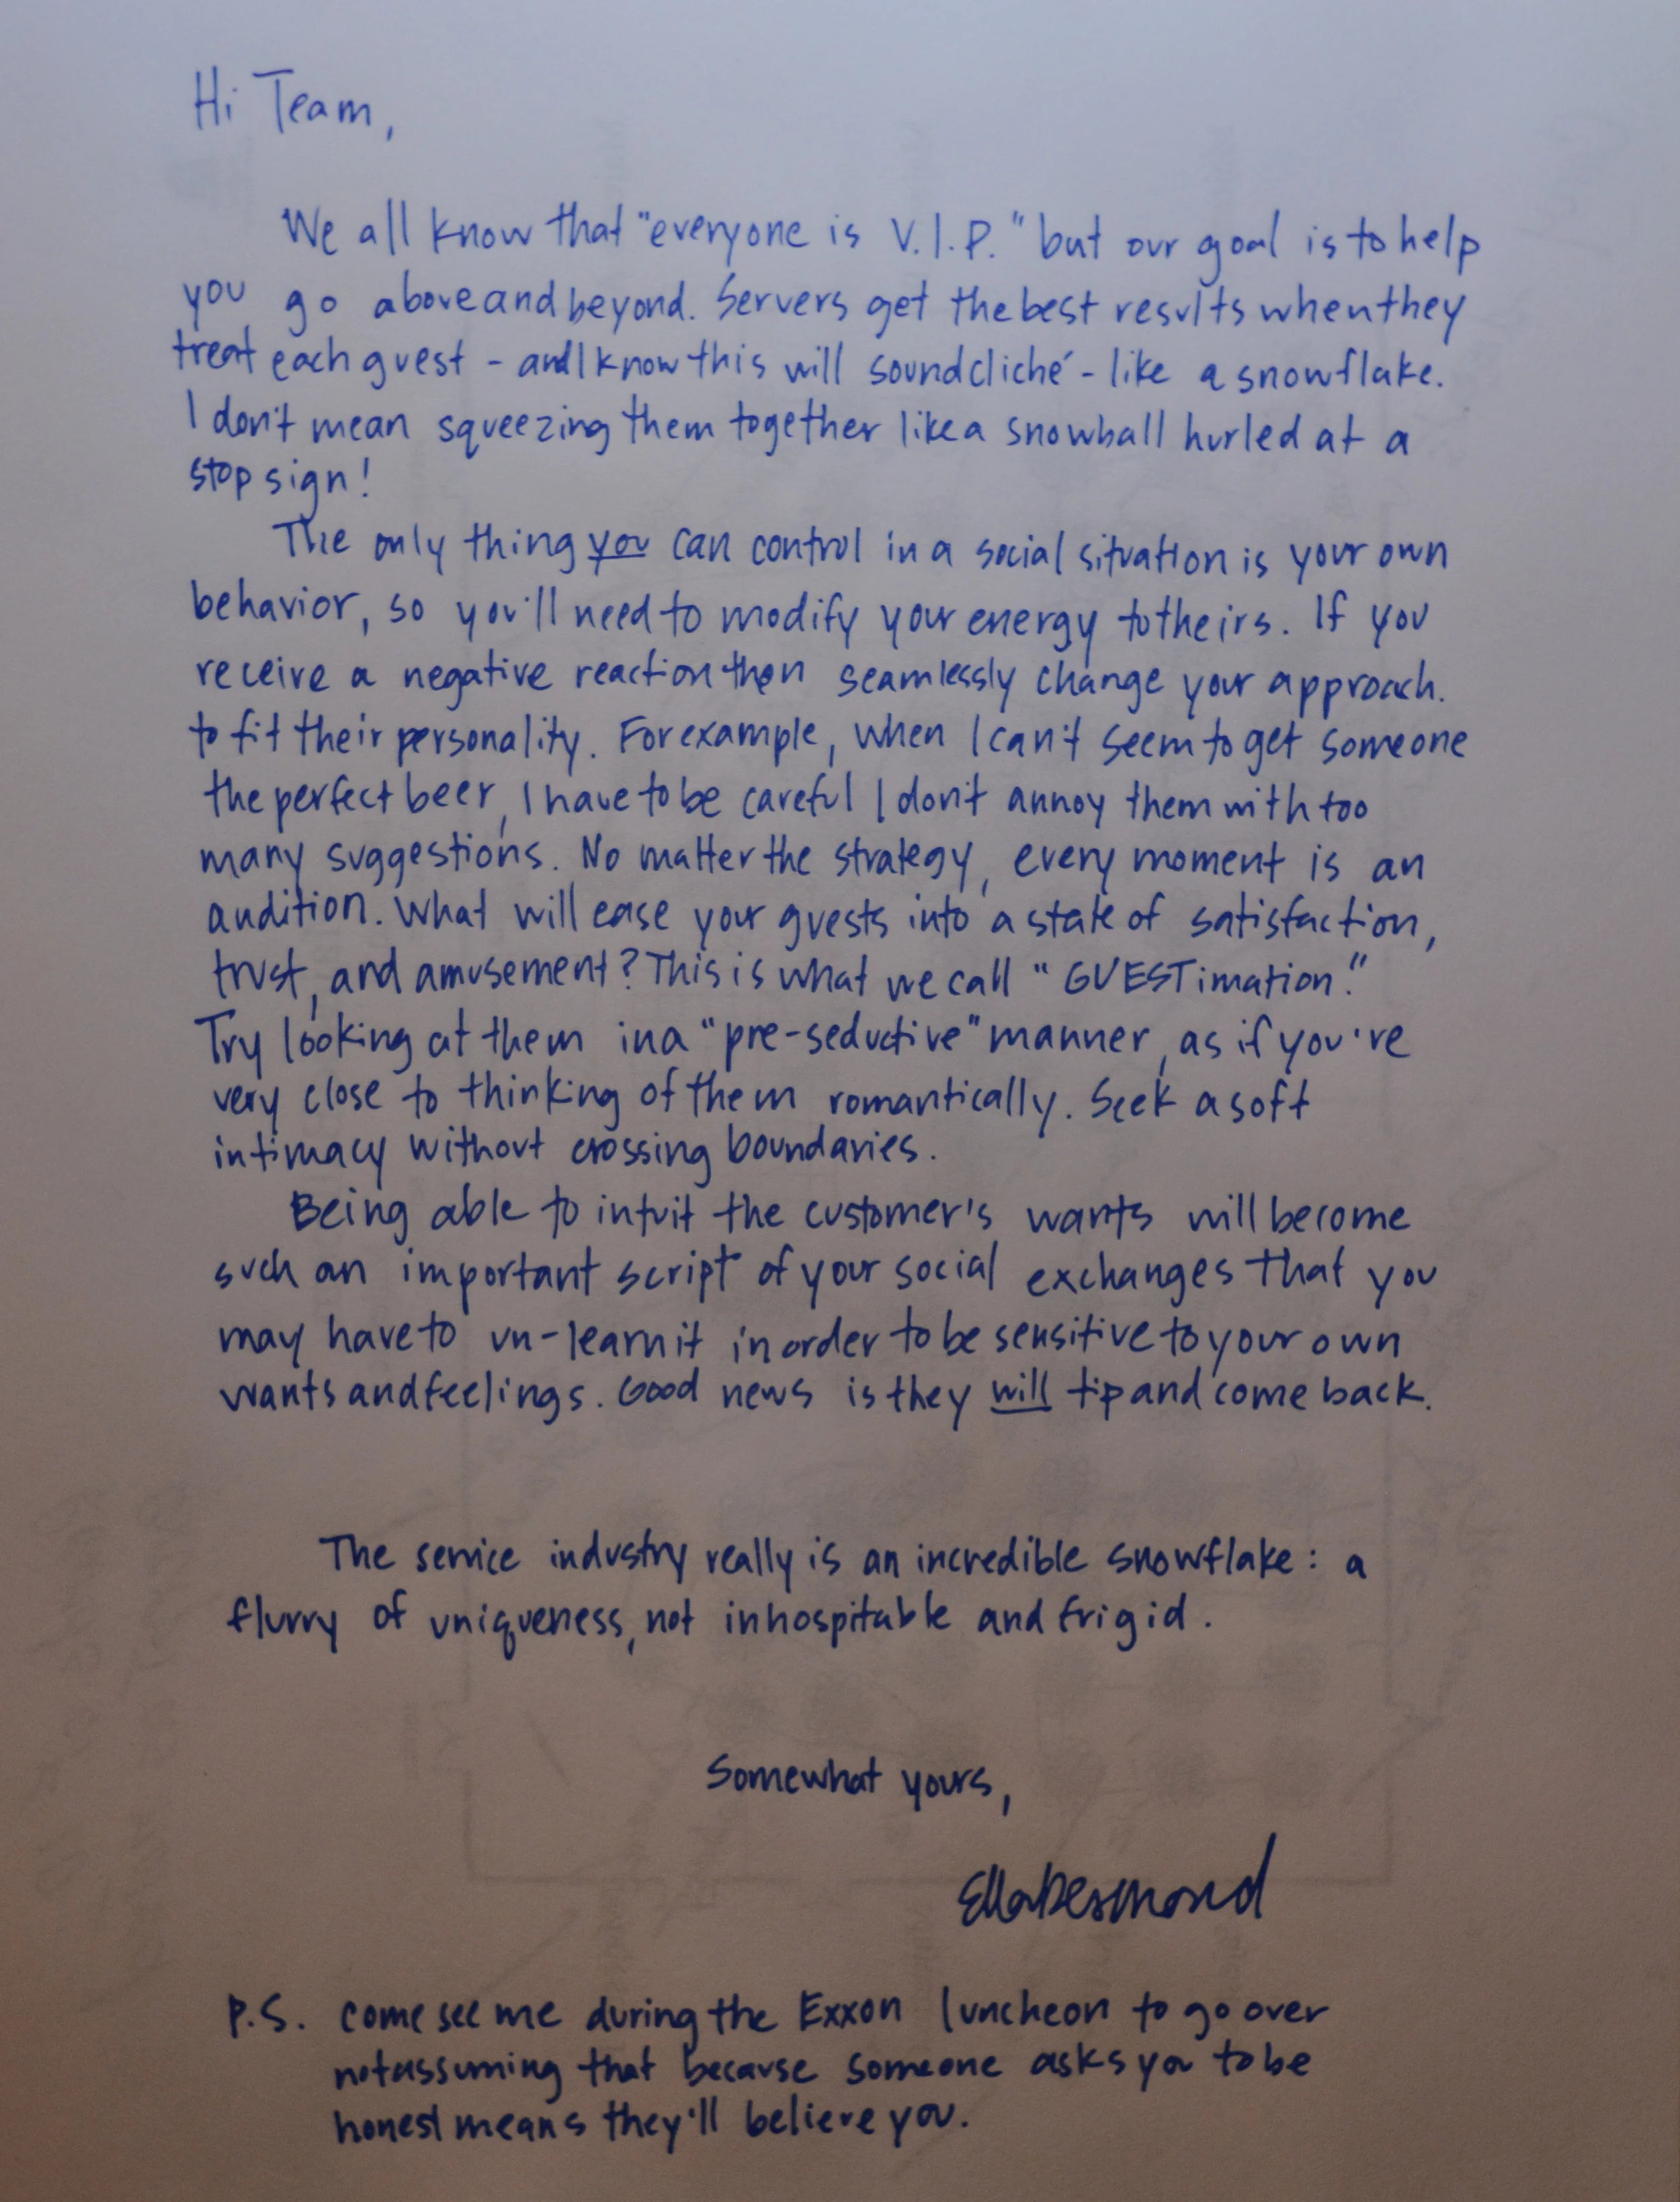 Hi Team,
We all know that "everyone is V.I.P." but our goal is to help
you go above and beyond. Servers get the best results when they
treat each guest - and I know this will sound cliché - like a snowflake.
I don't mean squeezing them together like a snowball hurled at a
stop sign!
The only thing you can control in a social situation is your own
behavior, so you'll need to modify your energy to theirs. If you
receive a negative reaction then seamlessly change your approach.
to fit their personality. For example, when I can't seem to get someone
the perfect beer, I have to be careful I don't annoy them with too
many suggestions. No matter the strategy, every moment is an
audition. What will ease your guests into a state of satisfaction,
trust, and amusement? This is what we call "GUESTimation."
Try looking at them in a "pre-seductive" manner, as if you're
very close to thinking of them romantically. Seek a soft
intimacy without crossing boundaries.
Being able to intuit the customer's wants will become
such an important script of your social exchanges that you
may have to un-learn it in order to be sensitive to your own
wants and feelings. Good news is they will tip and come back.
The service industry really is an incredible snowflake: a
flurry of uniqueness, not inhospitable and frigid.
Somewhat yours,
Ella Desmond
P.S. come see me during the Exxon luncheon to go over
not assuming that because someone asks you to be
honest means they'll believe you.